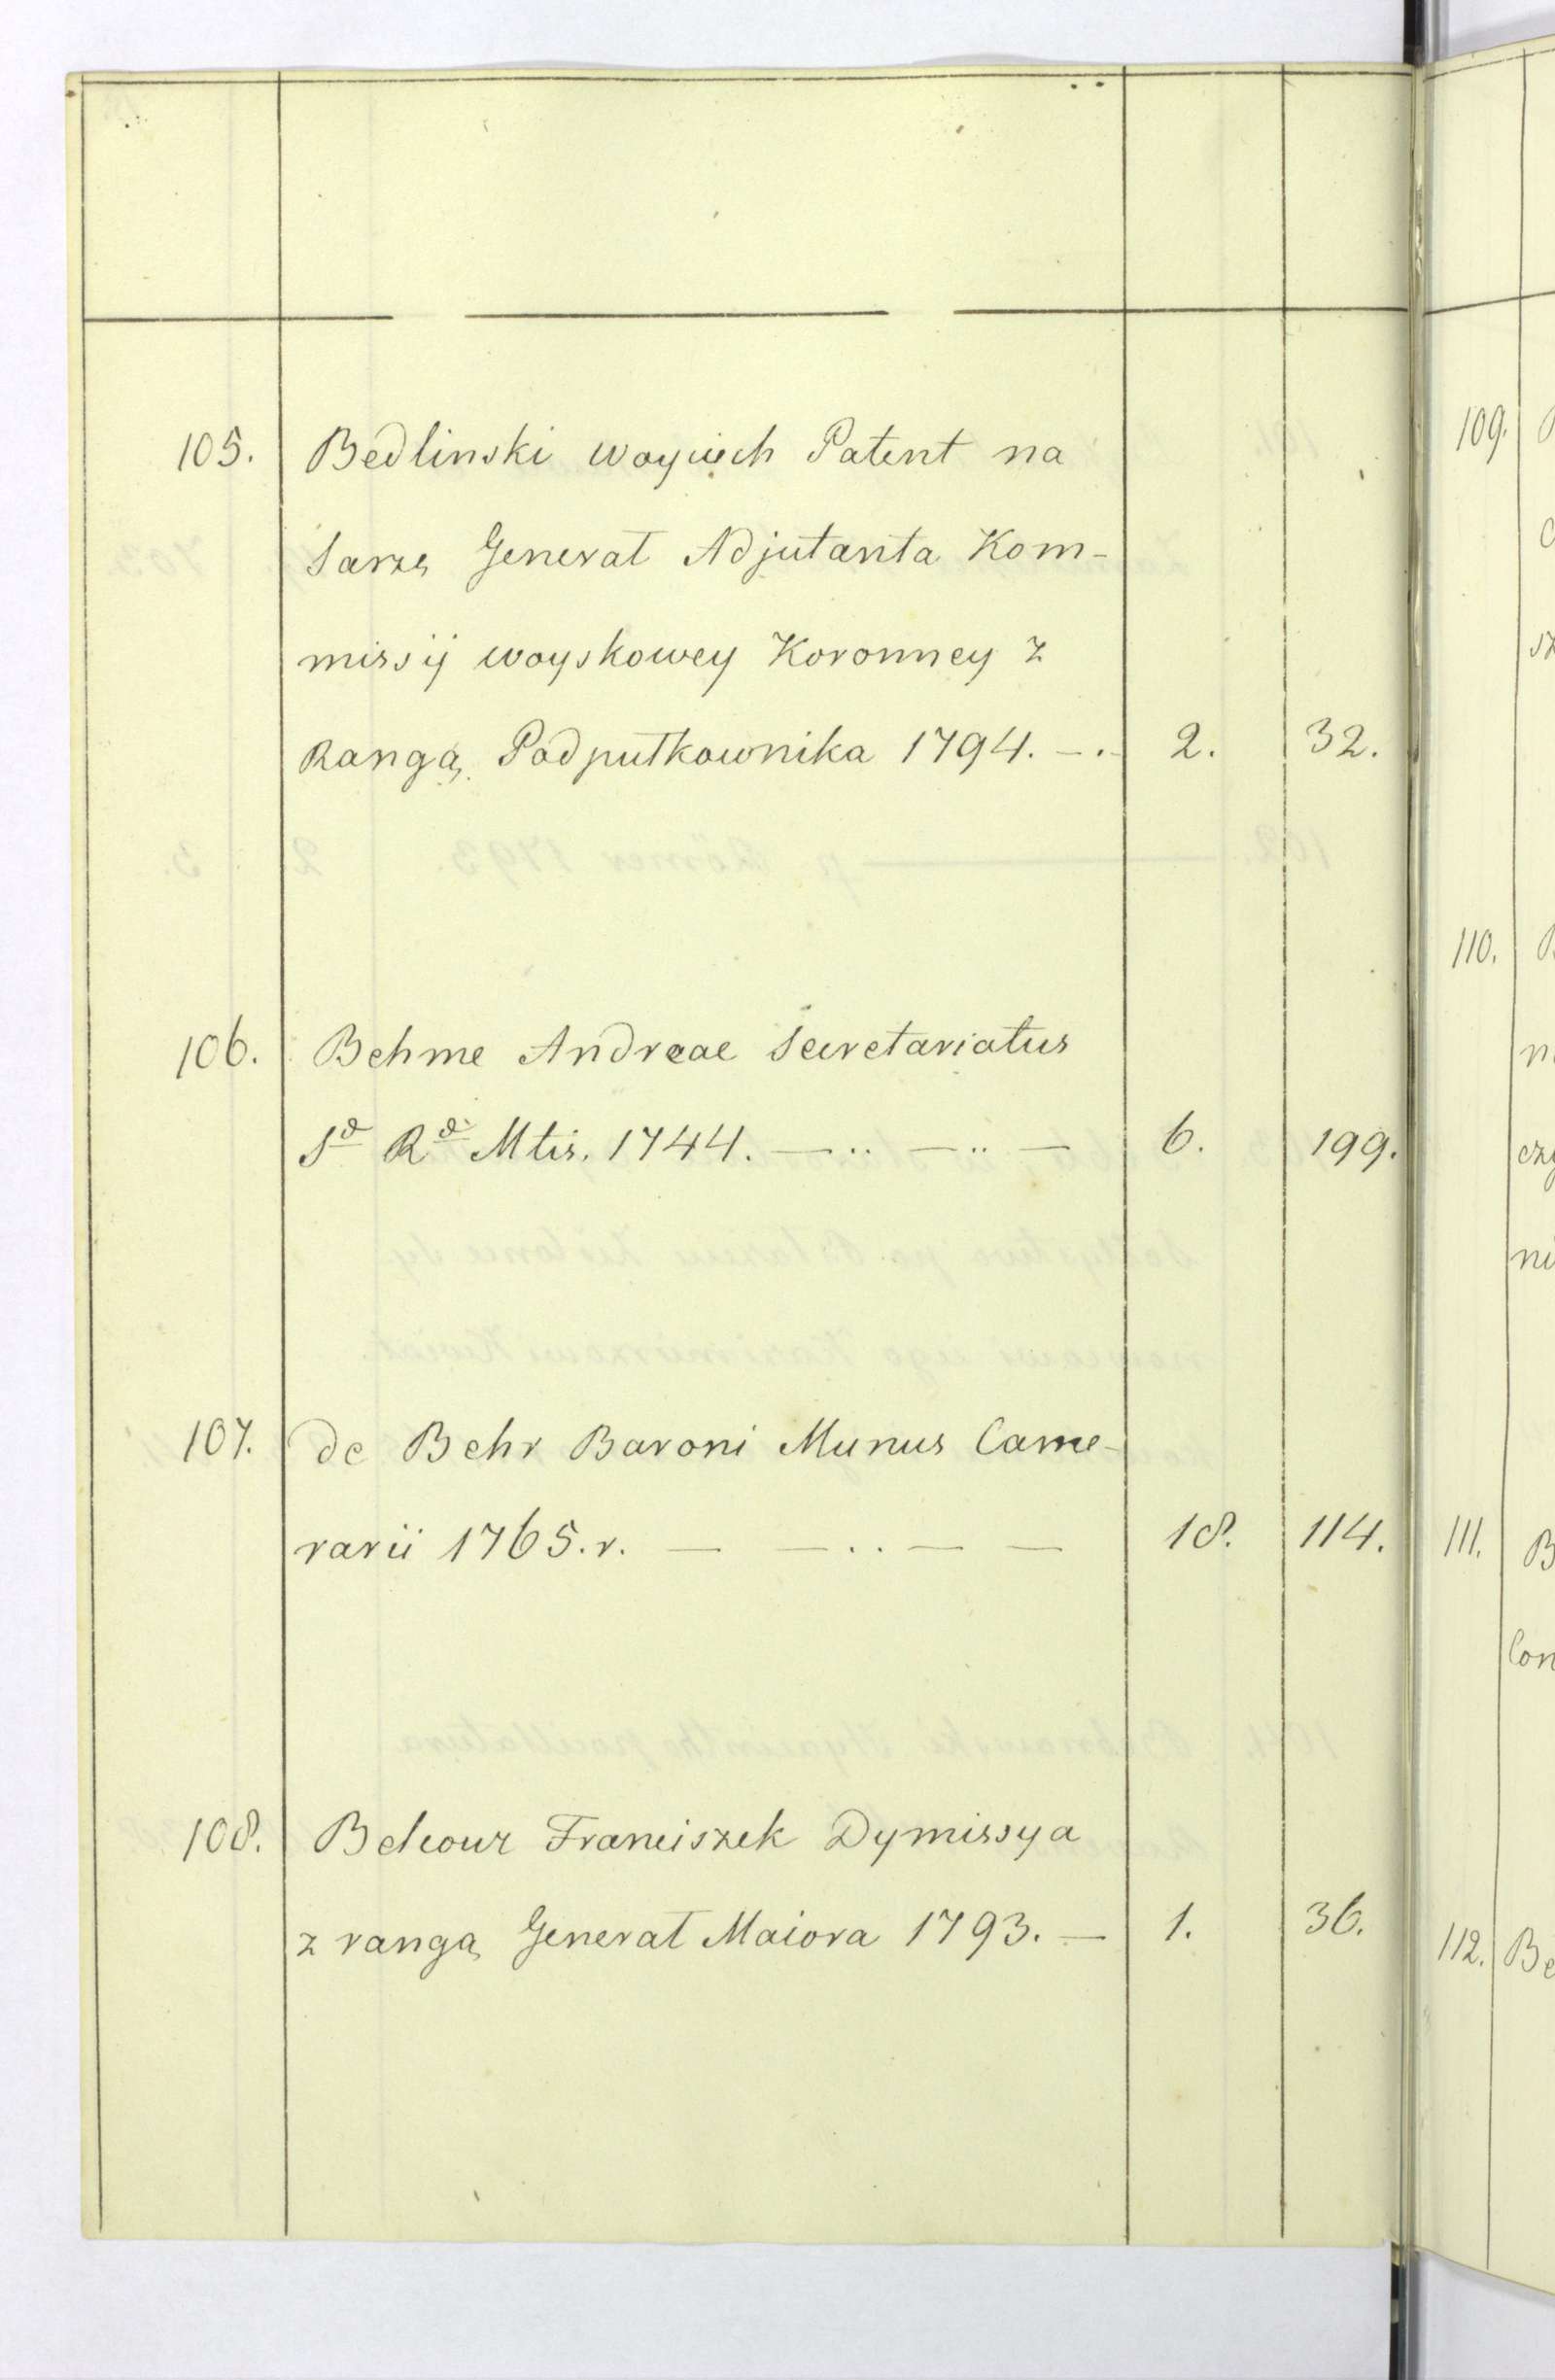 105. Bedlinski Woyciech Patent na
Sarzę Generał Adjutanta Kom-
missij woyskowey Koronney z
Rangą Podpułkownika 1794. — . — 2. 32.
106. Behme Andreae Secretariatus
S^ae R^ae Mtis. 1744. — .. — .. — 6. 199.
107. de Behr Baroni Munus Came-
rarii 1765. r. — — .. — — 18. 114.
108. Belcour Franciszek Dymissya
z rangą Generał Maiora 1793. — 1. 36.
109.
110.
111.
112. Be